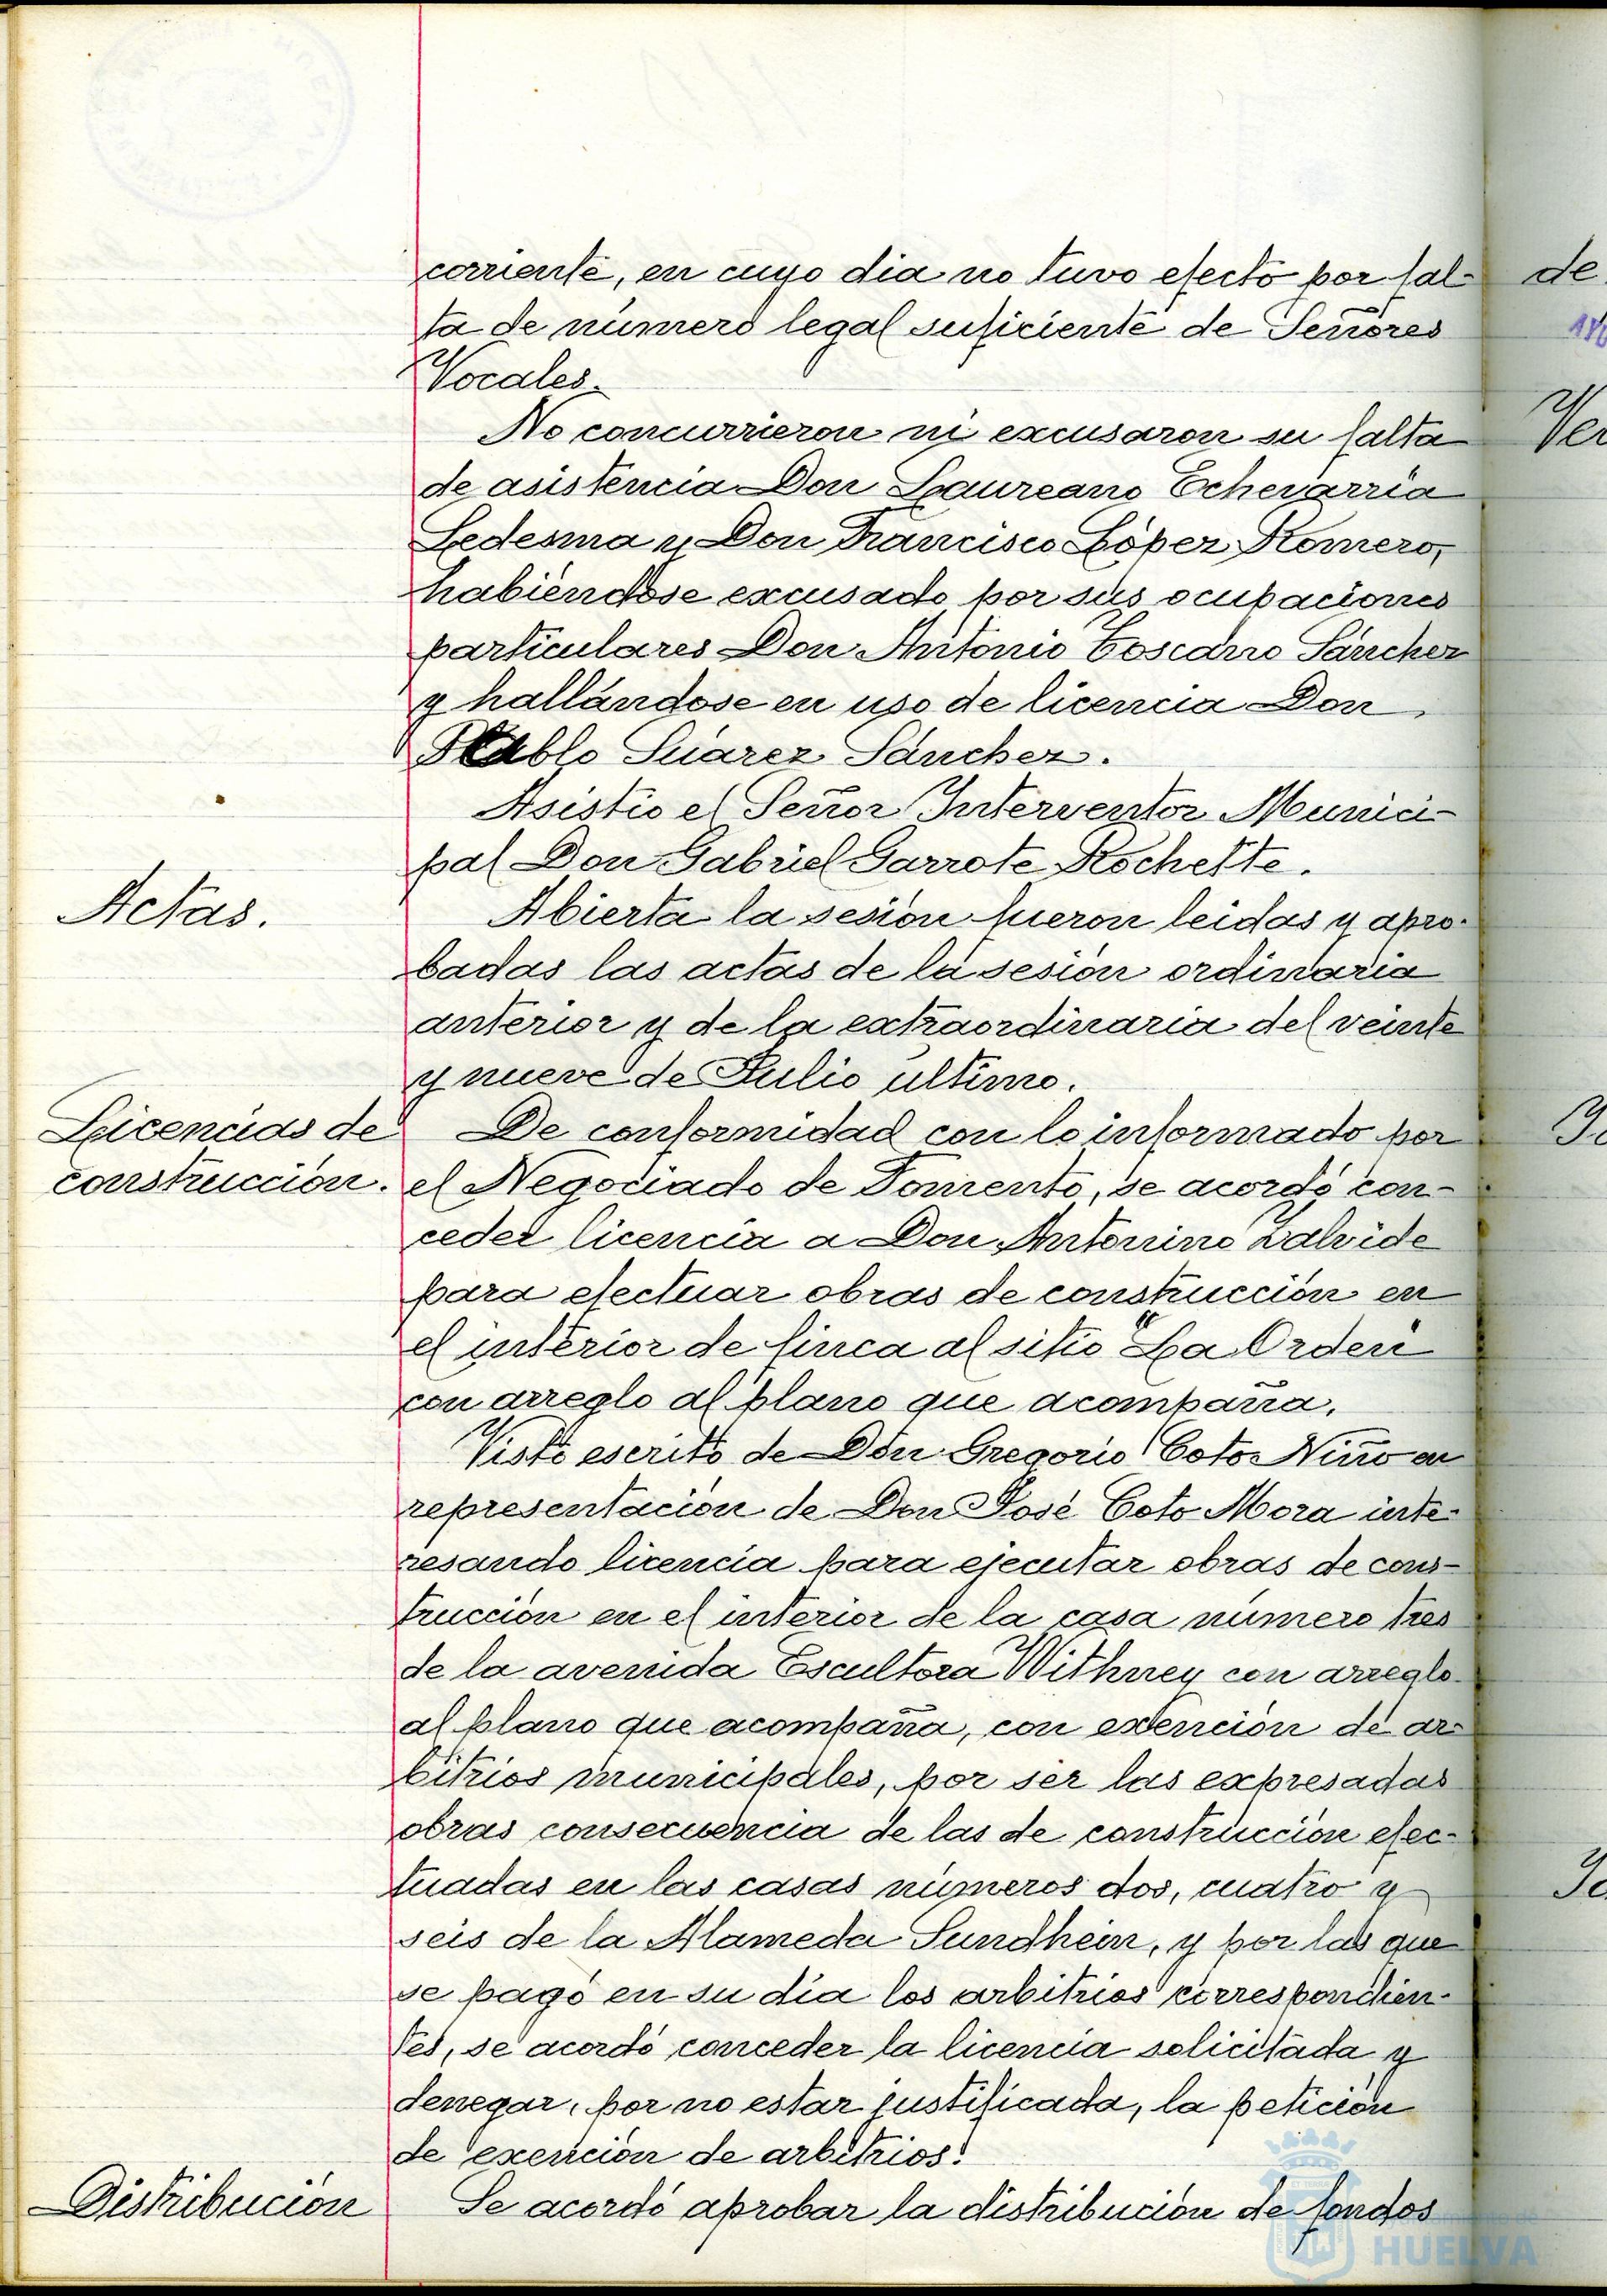 corriente, en cuyo dia no tuvo efecto por fal-
ta de número legal suficiente de Señores
Vocales.
No concurrieron ni excusaron su falta
de asistencia Don Laureano Echevarría
Ledesma y Don Francisco López Romero,
habiéndose excusado por sus ocupaciones
particulares Don Antonio Toscano Sánchez
y hallándose en uso de licencia Don
Pablo Suárez Sánchez.
Asistio el Señor Interventor Munici-
pal Don Gabriel Garrote Rochette.
Actas.
Abierta la sesión fueron leidas y apro-
badas las actas de la sesión ordinaria
anterior y de la extraordinaria del veinte
y nueve de Julio último.
Licencias de
construcción.
De conformidad con lo informado por
el Negociado de Fomento, se acordó con-
ceder licencia a Don Antonino Zalvide
para efectuar obras de construcción en
el interior de finca al sitio "La Orden"
con arreglo al plano que acompaña.
Visto escrito de Don Gregorio Coto Niño en
representación de Don José Coto Mora inte-
resando licencia para ejecutar obras de cons-
trucción en el interior de la casa número tres
de la avenida Escultora Withney con arreglo
al plano que acompaña, con extención de ar-
bitrios municipales, por ser las expresadas
obras consecuencia de las de construcción efec-
tuadas en las casas números dos, cuatro y
seis de la Alameda Sundhein, y por las que
se pagó en su día los arbitrios correspondien-
tes, se acordó conceder la licencia solicitada y
denegar, por no estar justificada, la petición
de exención de arbitrios.
Distribución
Se acordó aprobar la distribución de fondos
de
Ver
HUELVA